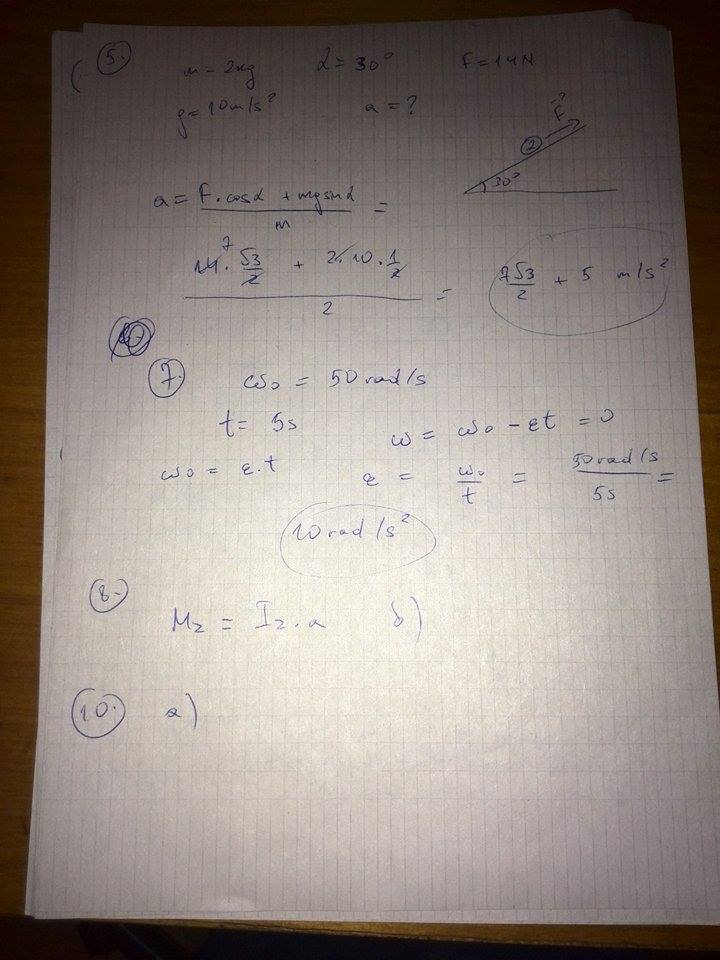 5.
m = 2kg α = 30° F = 14N
g = 10m/s² a = ?
F
2
30°
a = F.cosα + mgsinα / m =
14.⁷ √3/2 + 2.10.1/2 / 2 = 7√3/2 + 5 m/s²
7. ω₀ = 50rad/s
t = 5s ω = ω₀ - εt = 0
ω₀ = ε.t ε = ω₀/t = 50rad/s / 5s =
10rad/s²
8. Mz = Iz.a б)
10. a)